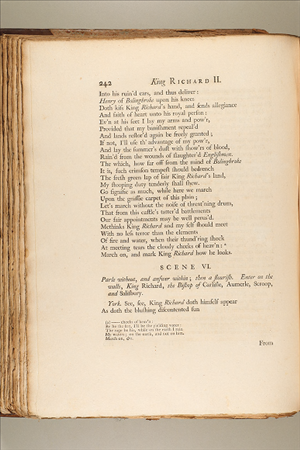 242 King RICHARD II.
Into his ruin'd ears, and thus deliver:
Henry of Bolingbroke upon his knees
Doth kiss King Richard's hand, and sends allegiance
And faith of heart unto his royal person:
Ev'n at his feet I lay my arms and pow'r,
Provided that my banishment repeal'd
And lands restor'd again be freely granted;
If not, I'll use th' advantage of my pow'r,
And lay the summer's dust with show'rs of blood,
Rain'd from the wounds of slaughter'd Englishmen.
The which, how far off from the mind of Bolingbroke
It is, such crimson tempest should bedrench
The fresh green lap of fair King Richard's land,
My stooping duty tenderly shall shew.
Go signifie as much, while here we march
Upon the grassie carpet of this plain;
Let's march without the noise of threat'ning drum,
That from this castle's tatter'd battlements
Our fair appointments may be well perus'd.
Methinks King Richard and my self should meet
With no less terror than the elements
Of fire and water, when their thund'ring shock
At meeting tears the cloudy cheeks of heav'n:
March on, and mark King Richard how he looks.
SCENE VI.
Parle without, and answer within; then a flourish. Enter on the
walls, King Richard, the Bishop of Carlisle, Aumerle, Scroop,
and Salisbury.
York. See, see, King Richard doth himself appear
As doth the blushing discontented sun
cheeks of heav'n:
Be he the fire, I'll be the yielding water:
The rage be his, while on the earth I rain
My waters; on the earth, and not on him.
March on, &c.
From